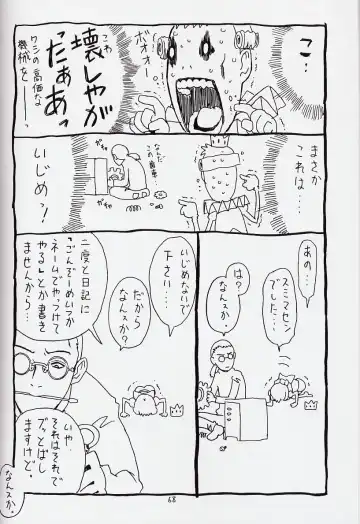 こ…
ボオオー。
こわ
壊しやが
ったぁあ
あっ
ワシの高価な
機械をーーっ
まさか
これは…
なんだ
この萌車
ガチャ
ガチャ
いじめっ!
あの…
スミマセン
でした…。
は?
なんスか。
いじめないで
下さい…。
だから
なんスか?
二度と日記に
「ごんぶーめいつか
ネームでやっつけて
やる」とか書き
ませんから…
いや、
それはそれで
ブッとばし
ますけど。
なんスか。
68